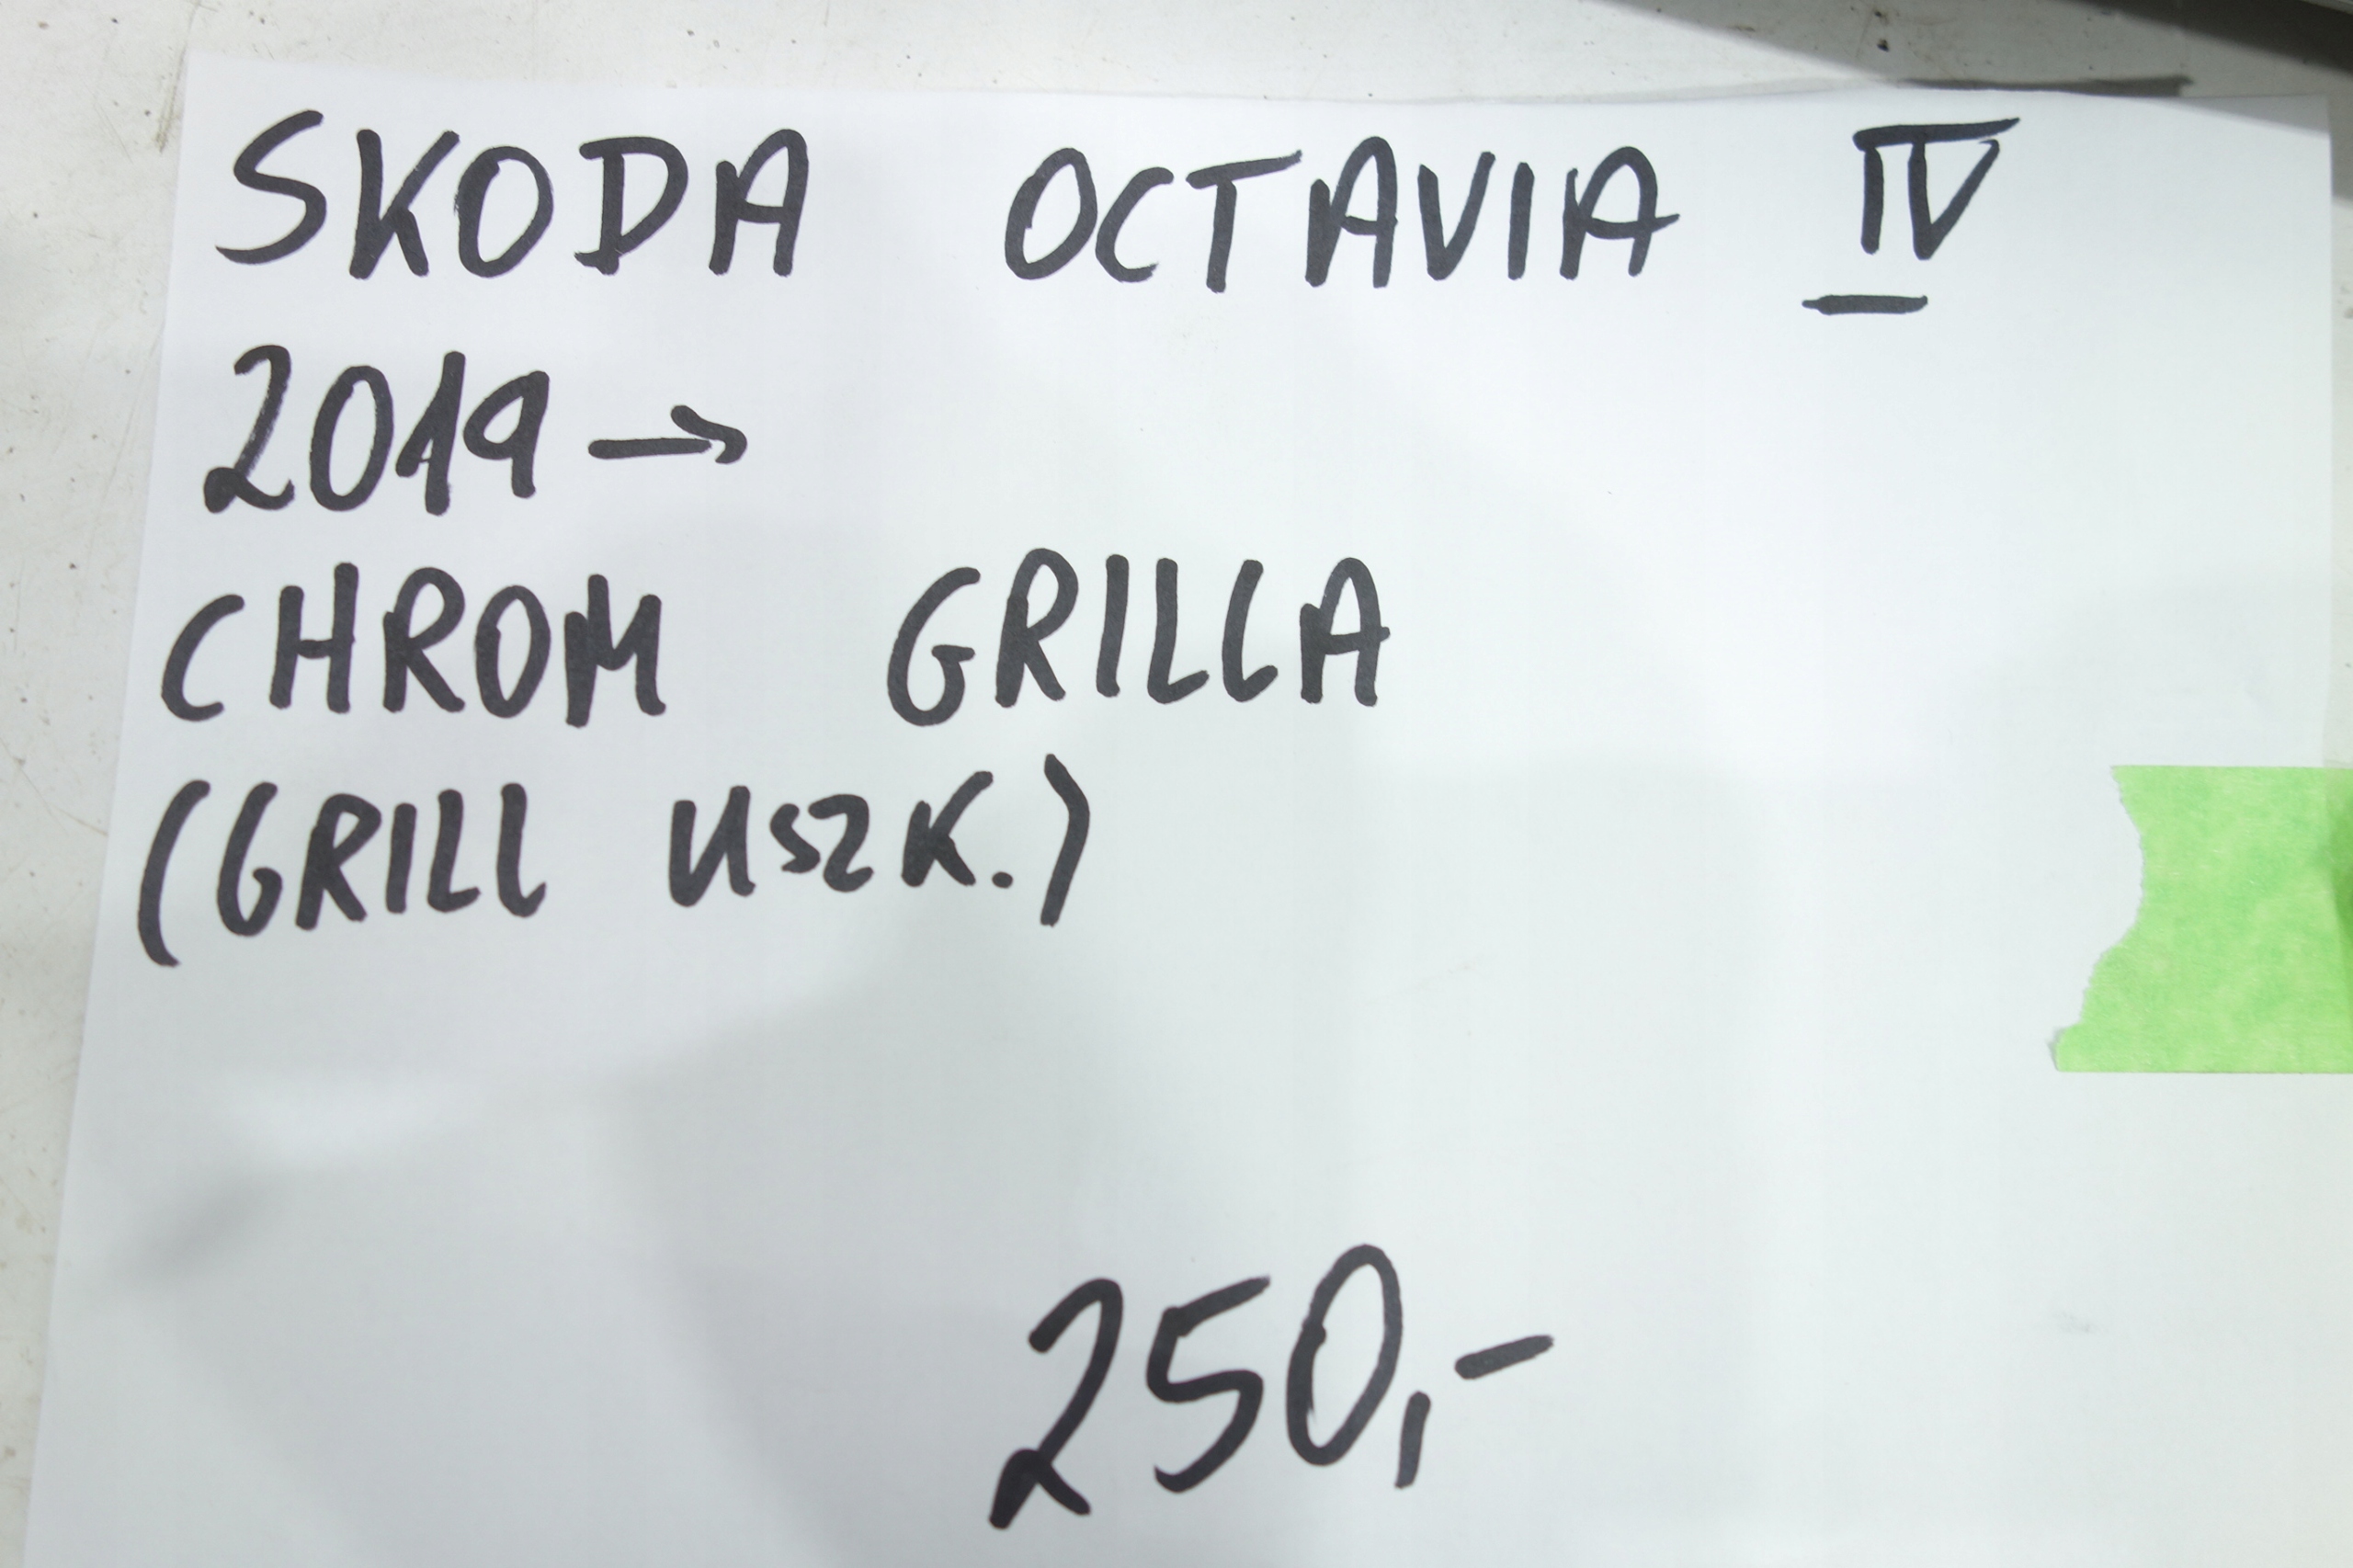 SKODA OCTAVIA IV
2019 →
CHROM GRILLA
(GRILL USZK.)
250,-